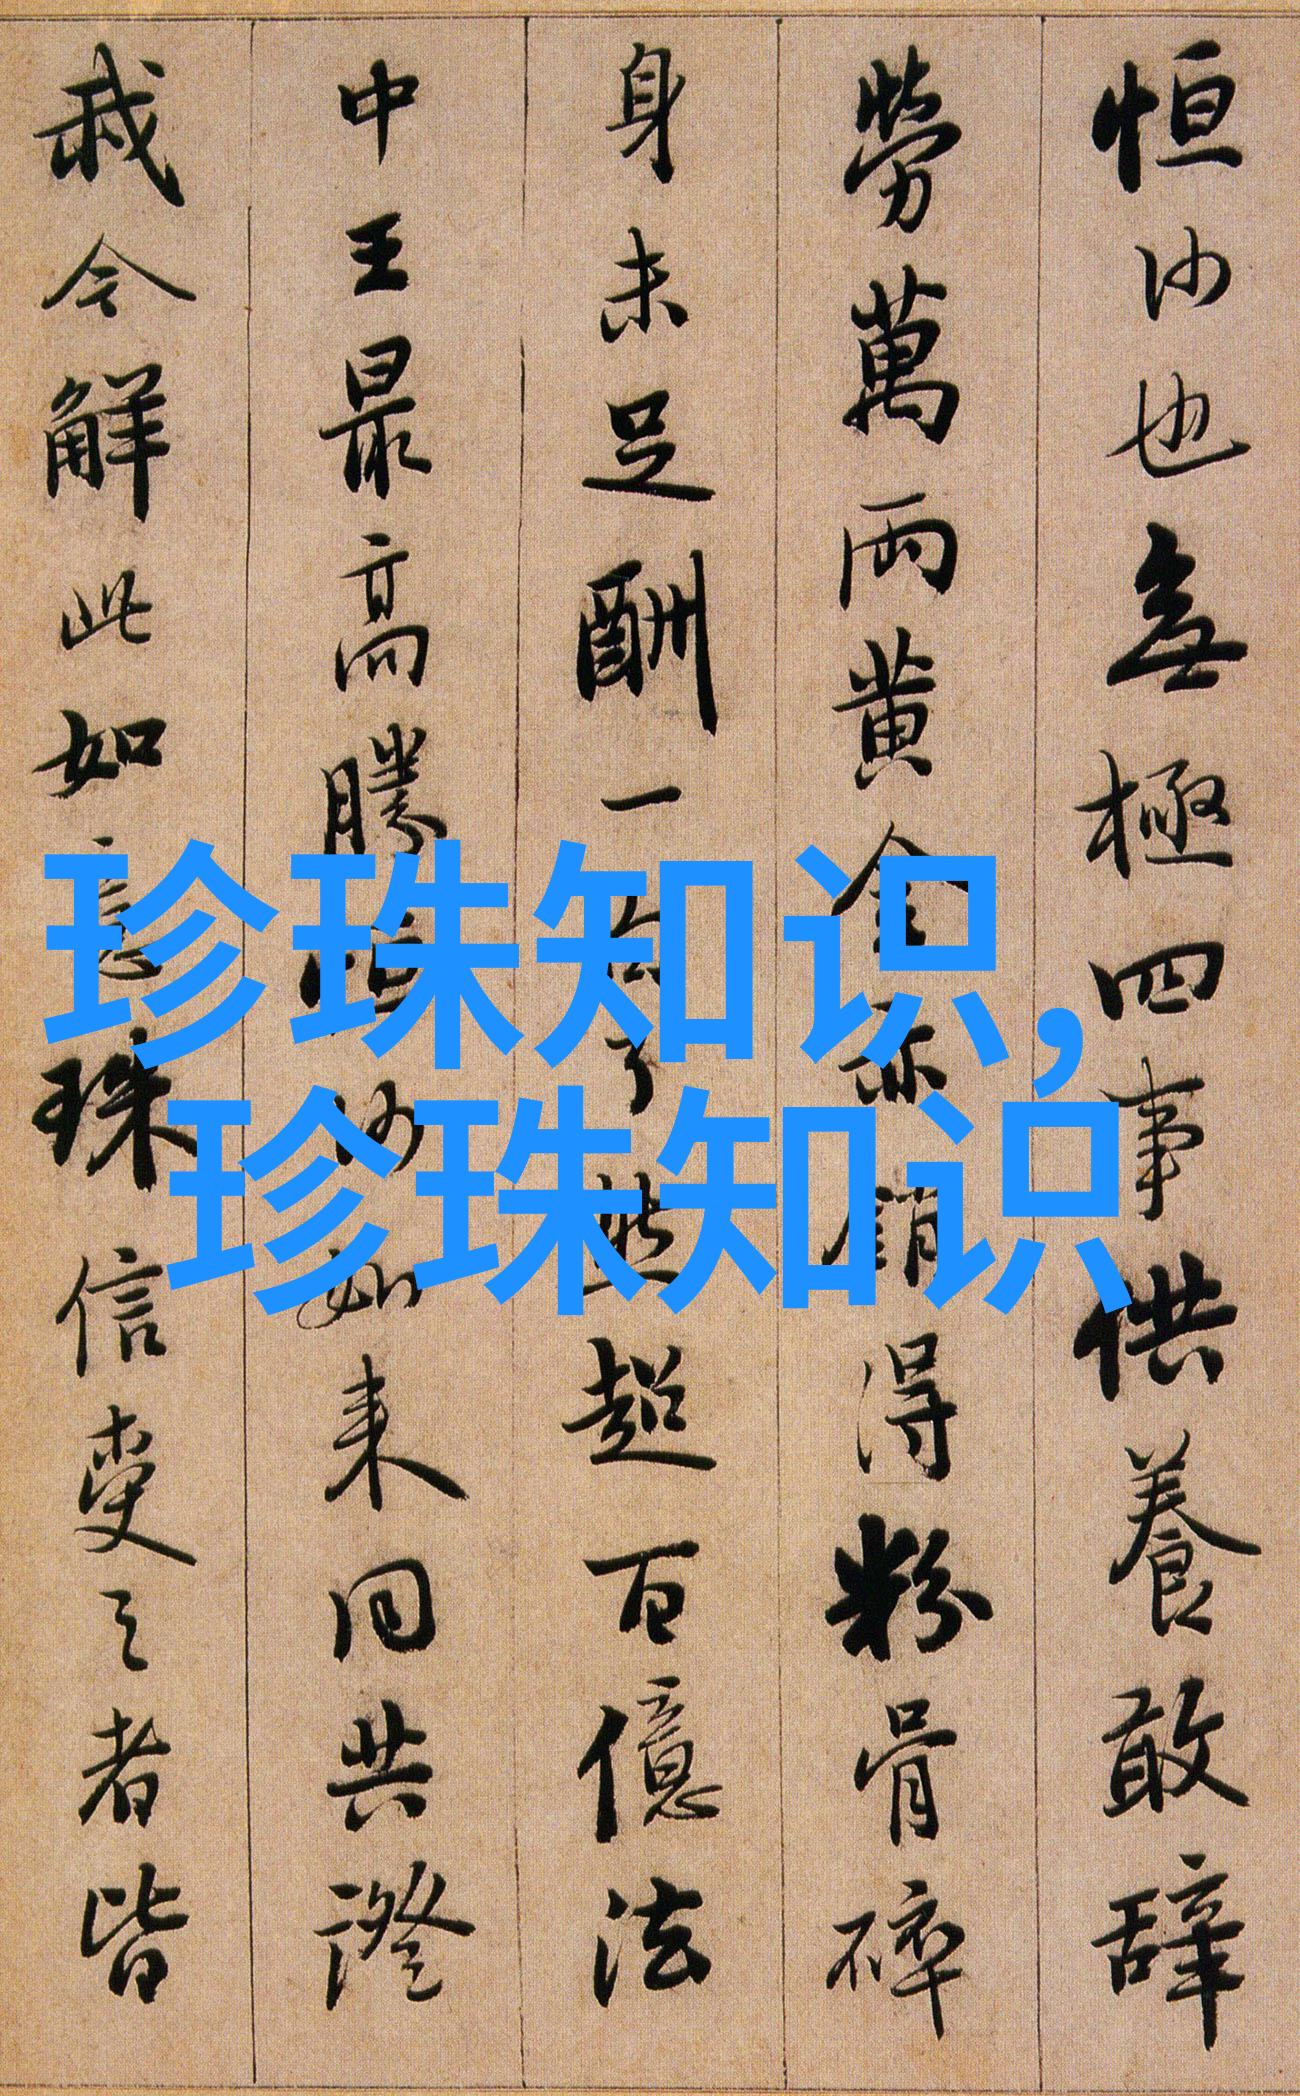 恒沙也無極四事供養敢辞
勞萬兩黃金亦銷得粉骨碎
身未足酬一句了然超百億法
中王最高勝恒沙如来同共證
我今解此如意珠信受之者皆
珍珠知识,
珍珠知识